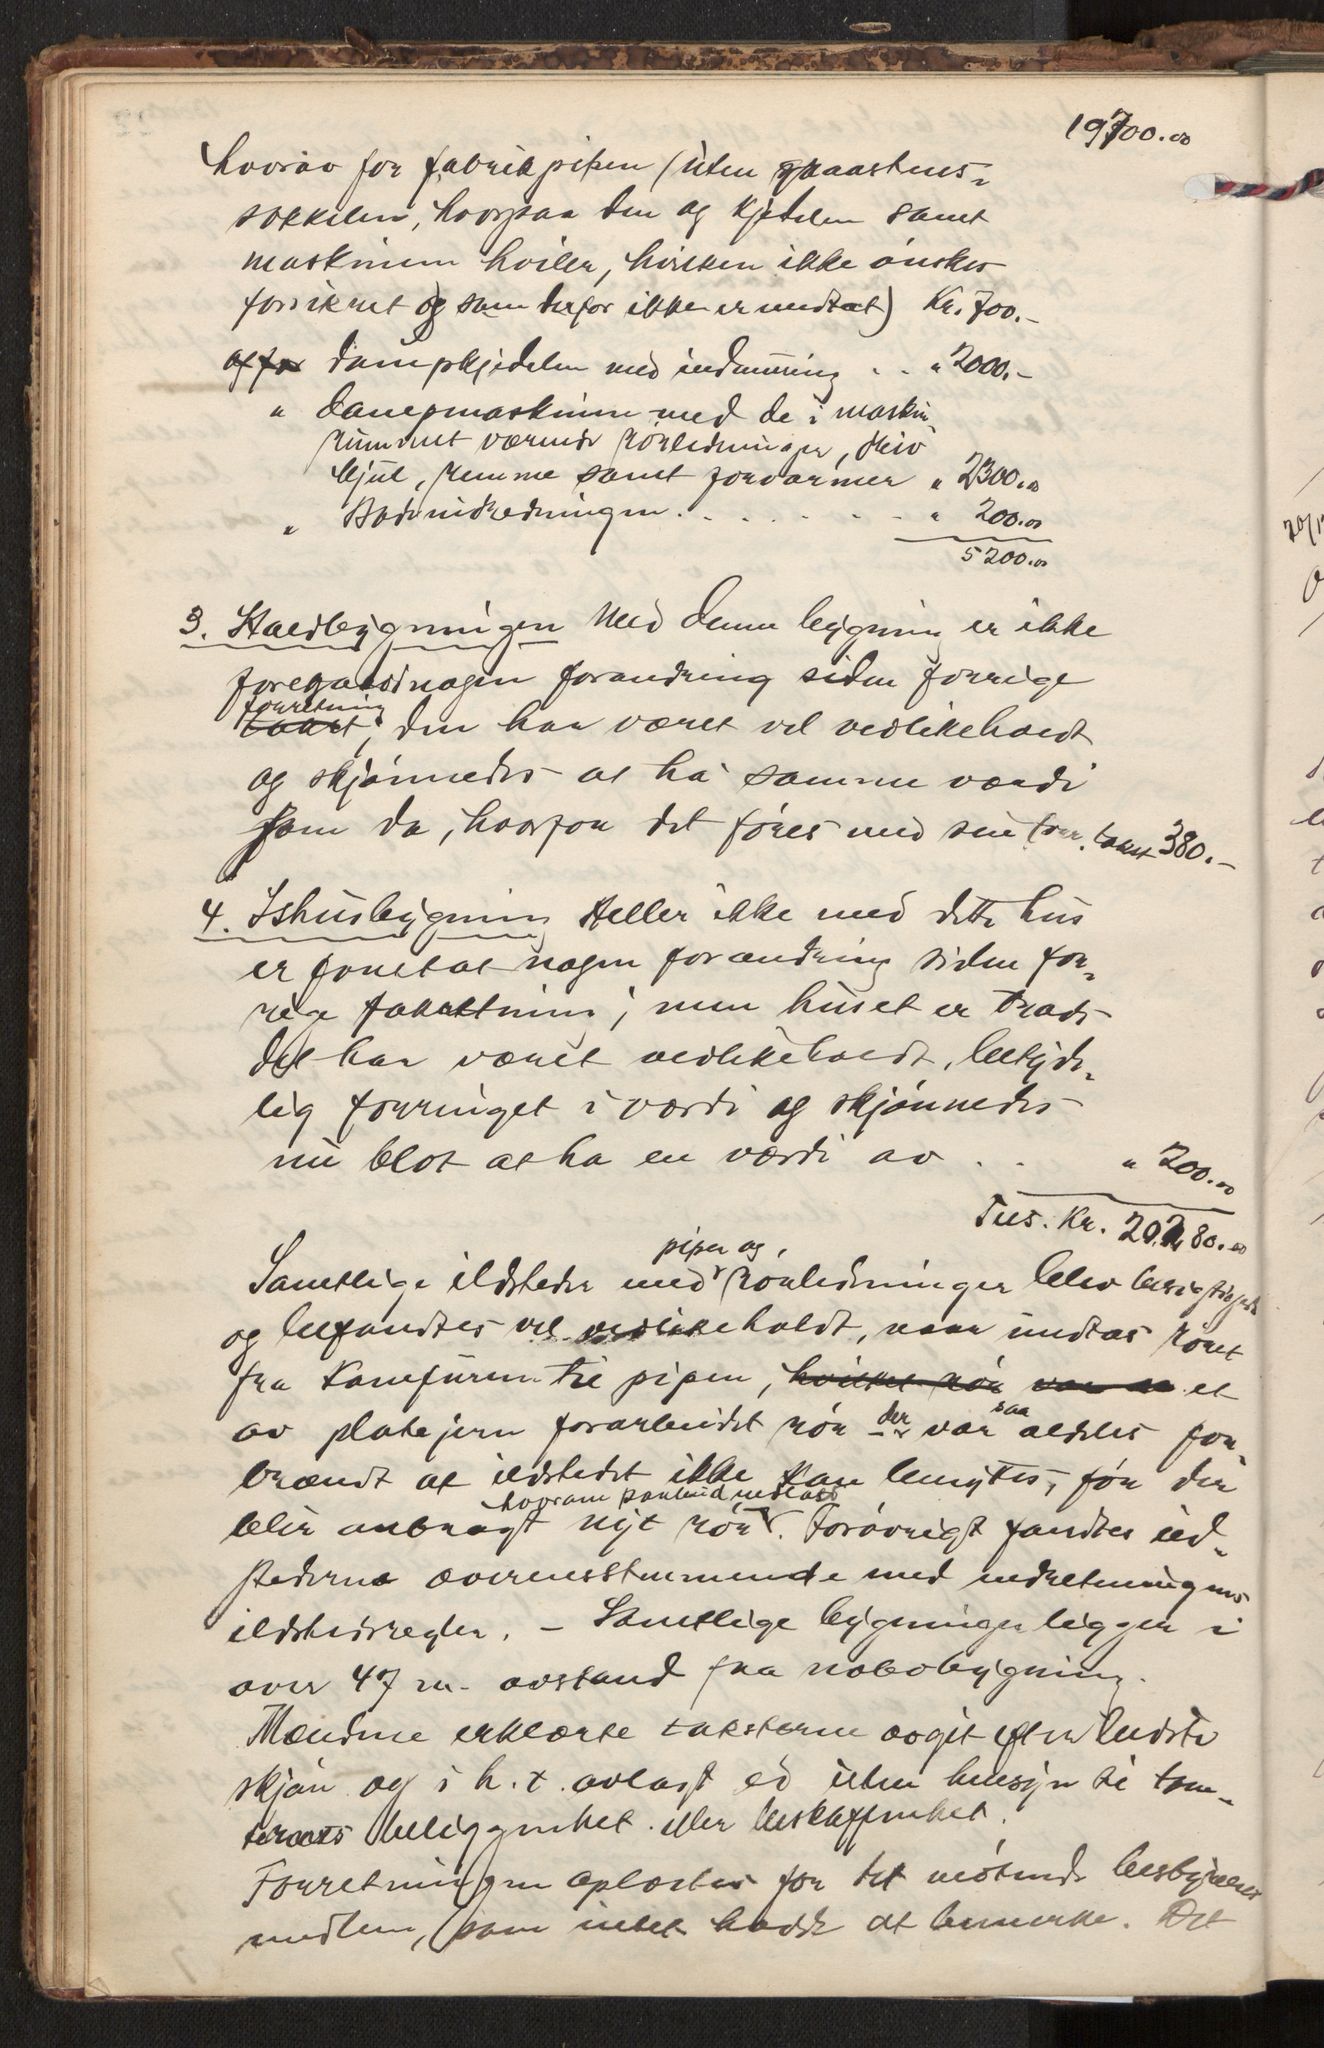 19700.00
hvorav for fabrikpipen (uten graastens-
sokkelen, hvorpaa den og kjedelen samt
maskinen hviler, hvilken ikke ønskes
forsikret og som derfor ikke er medtat) Kr. 700.-
" for dampkjedelen med indmuring . . " 2000.-
" dampmaskinen med de i maskin-
rummet værende rørledninger, driv
hjul, remme samt forvarmer " 2300.00
" Badeindredningen . . . . . . " 200.00
5200.00
3. Staldbygningen Med denne bygning er ikke
foregaad nogen forandring siden forrige
forretning
takst, den har været vel vedlikeholdt
og skjønnedes at ha samme værdi
som da, hvorfor det føres med sin forr. takst 380.-
4. Ishusbygning Heller ikke med dette hus
er foretat nogen forandring siden for-
rige forretning; men huset er trods
det har været vedlikeholdt, betyde-
lig forringet i værdi og skjønnedes
nu blot at ha en værdi av . . " 200.00
Tils. Kr. 20.280.00
piper og
Samtlige ildsteder med rørledninger blev besigtiget
og befandtes vel vedlikeholdt, naar undtas røret
fra Kamfuren til pipen, hvilket rør var et
av platejern forarbeidet rør der var saa aldeles for-
brændt at ildstedet ikke kan benyttes, før der
hvorom paabud nedlagdes
blir anbragt nyt rør. Forøvrigt fandtes ild-
stederne overensstemmende med indretningens
ildstedsregler. - Samtlige bygninger ligger i
over 47 m. avstand fra nabobygning.
Mændene erklærte taksterne avgit efter bedste
skjøn og i h. t. avlagt ed uten hensyn til tom-
ternes beliggenhet eller beskaffenhet.
Forretningen oplæstes for det møtende bestyrelses
medlem, som intet hadde at bemerke. Det